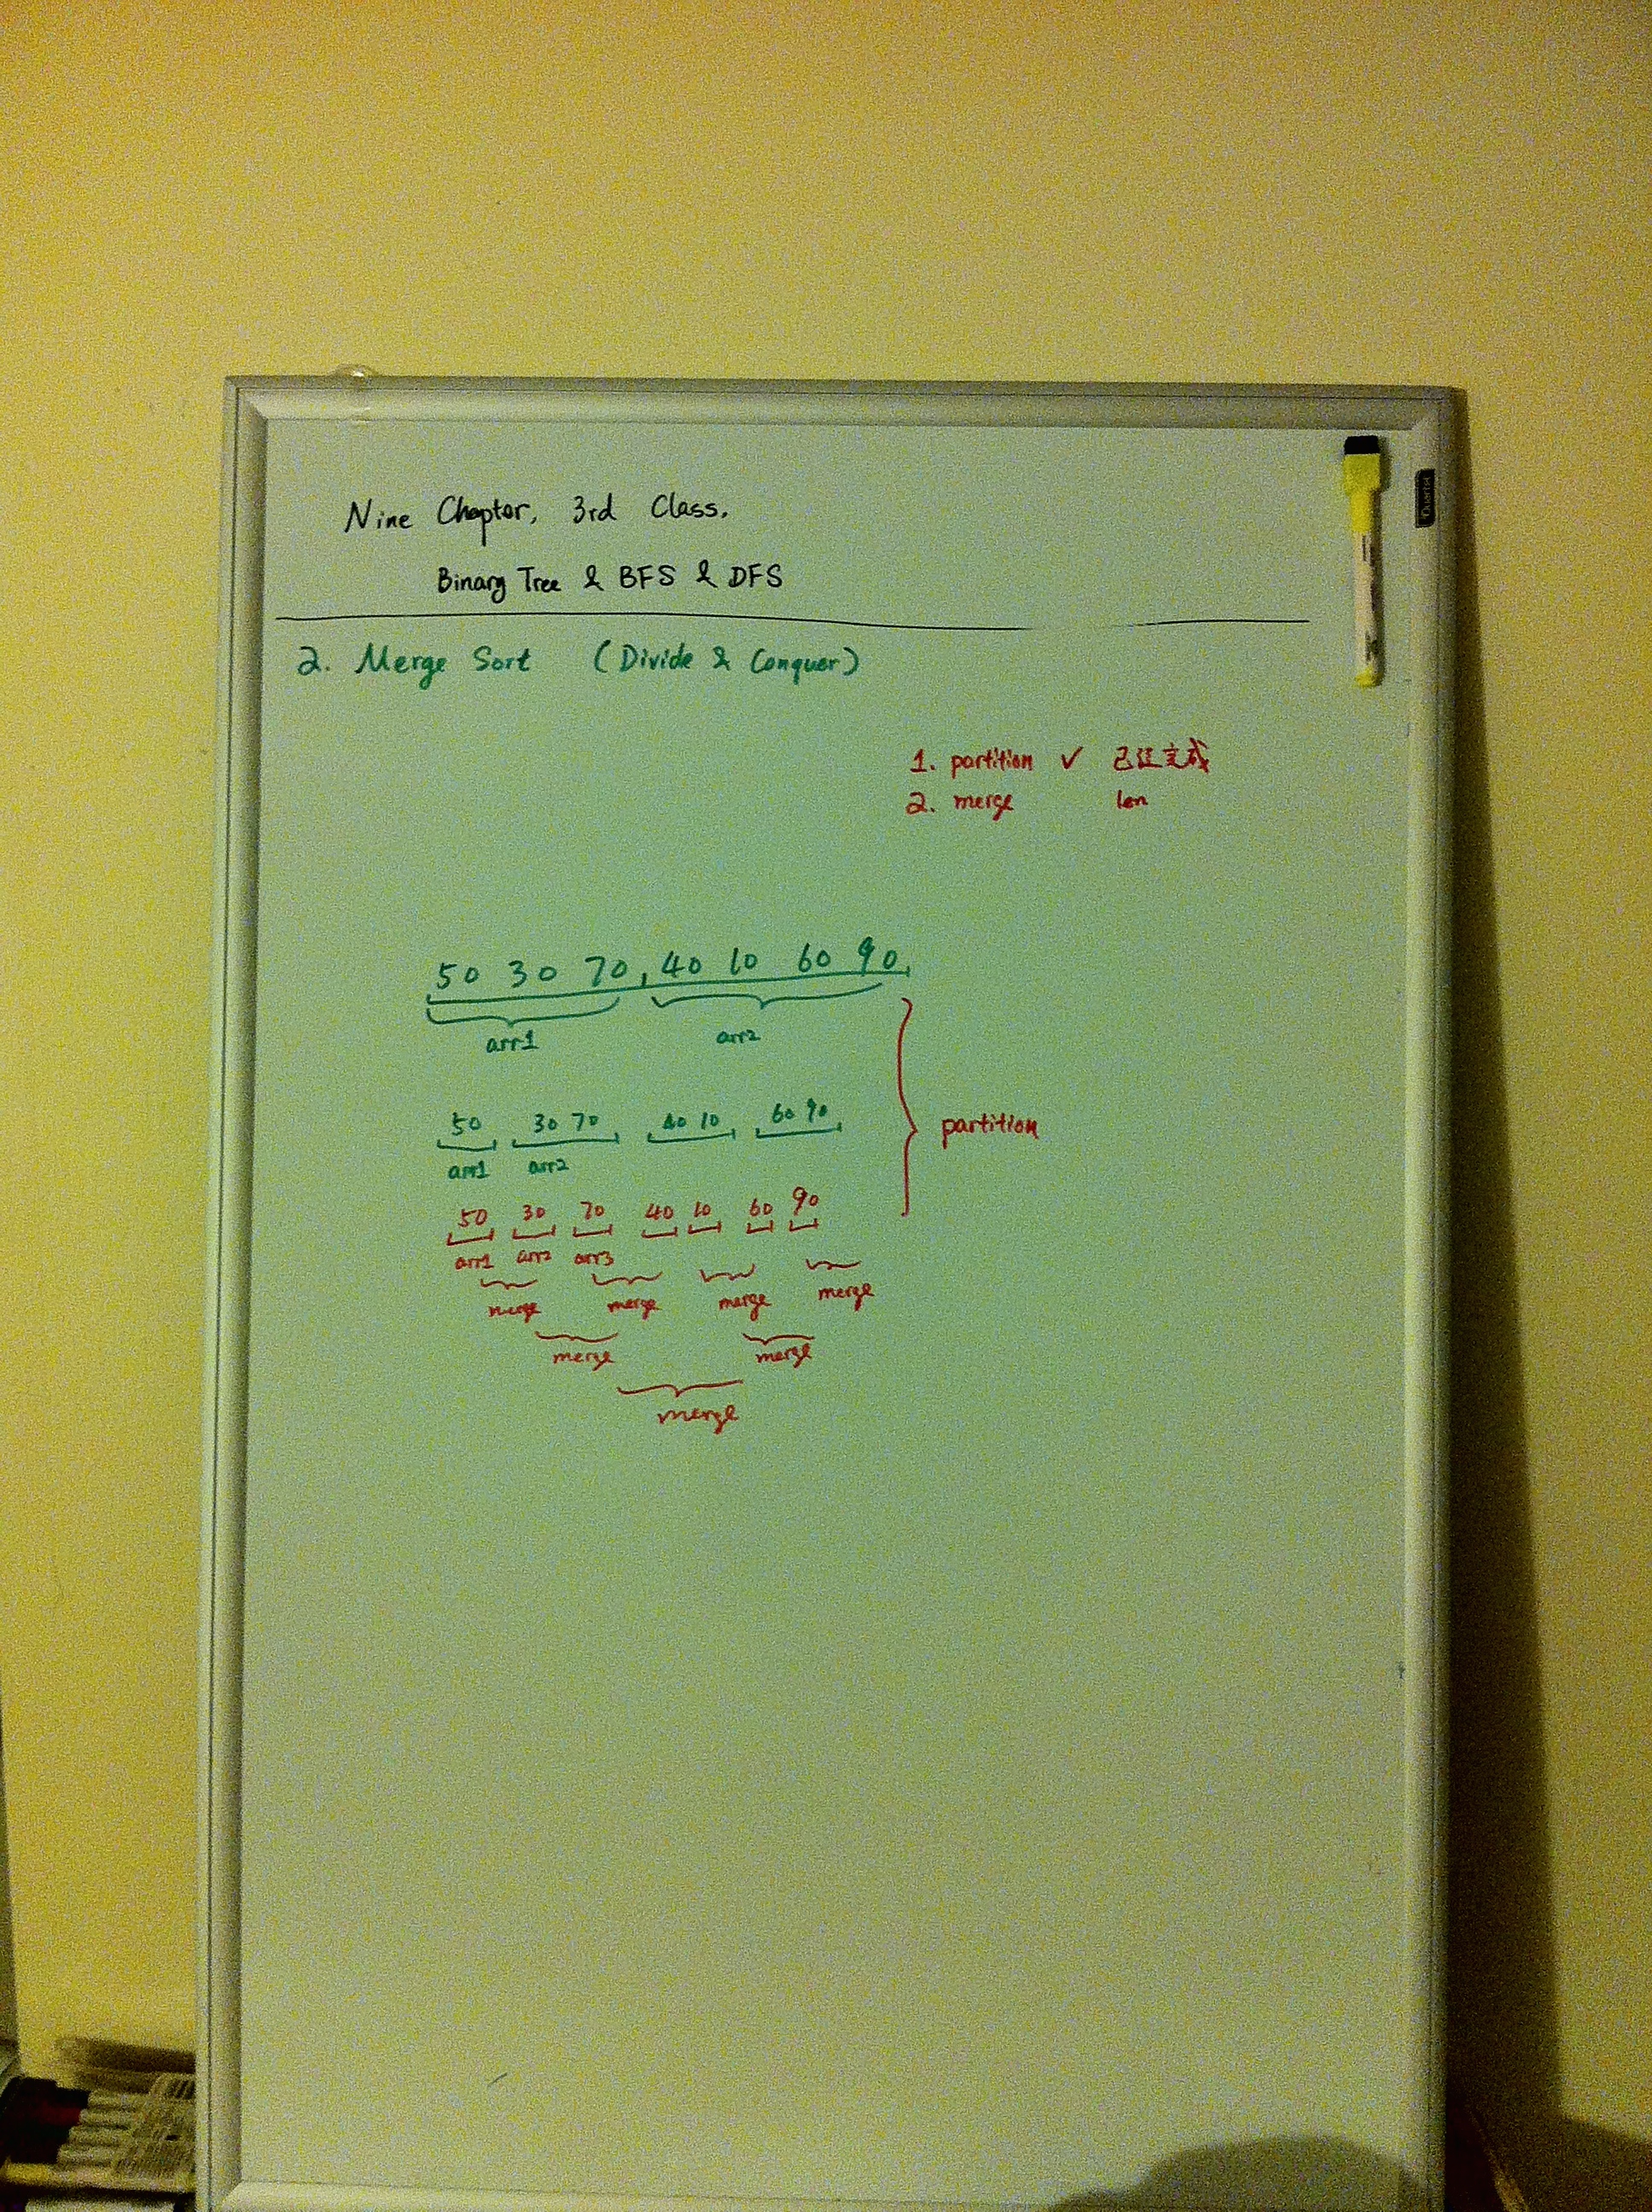 Nine Chapter, 3rd Class.
Binary Tree & BFS & DFS
2. Merge Sort (Divide & Conquer)
1. partition ✓ 已经完成
2. merge len
50 30 70, 40 10 60 90
arr1 arr2
50 30 70 40 10 60 90
arr1 arr2
partition
50 30 70 40 10 60 90
arr1 arr2 arr3
merge merge merge merge
merge merge
merge
Quartet